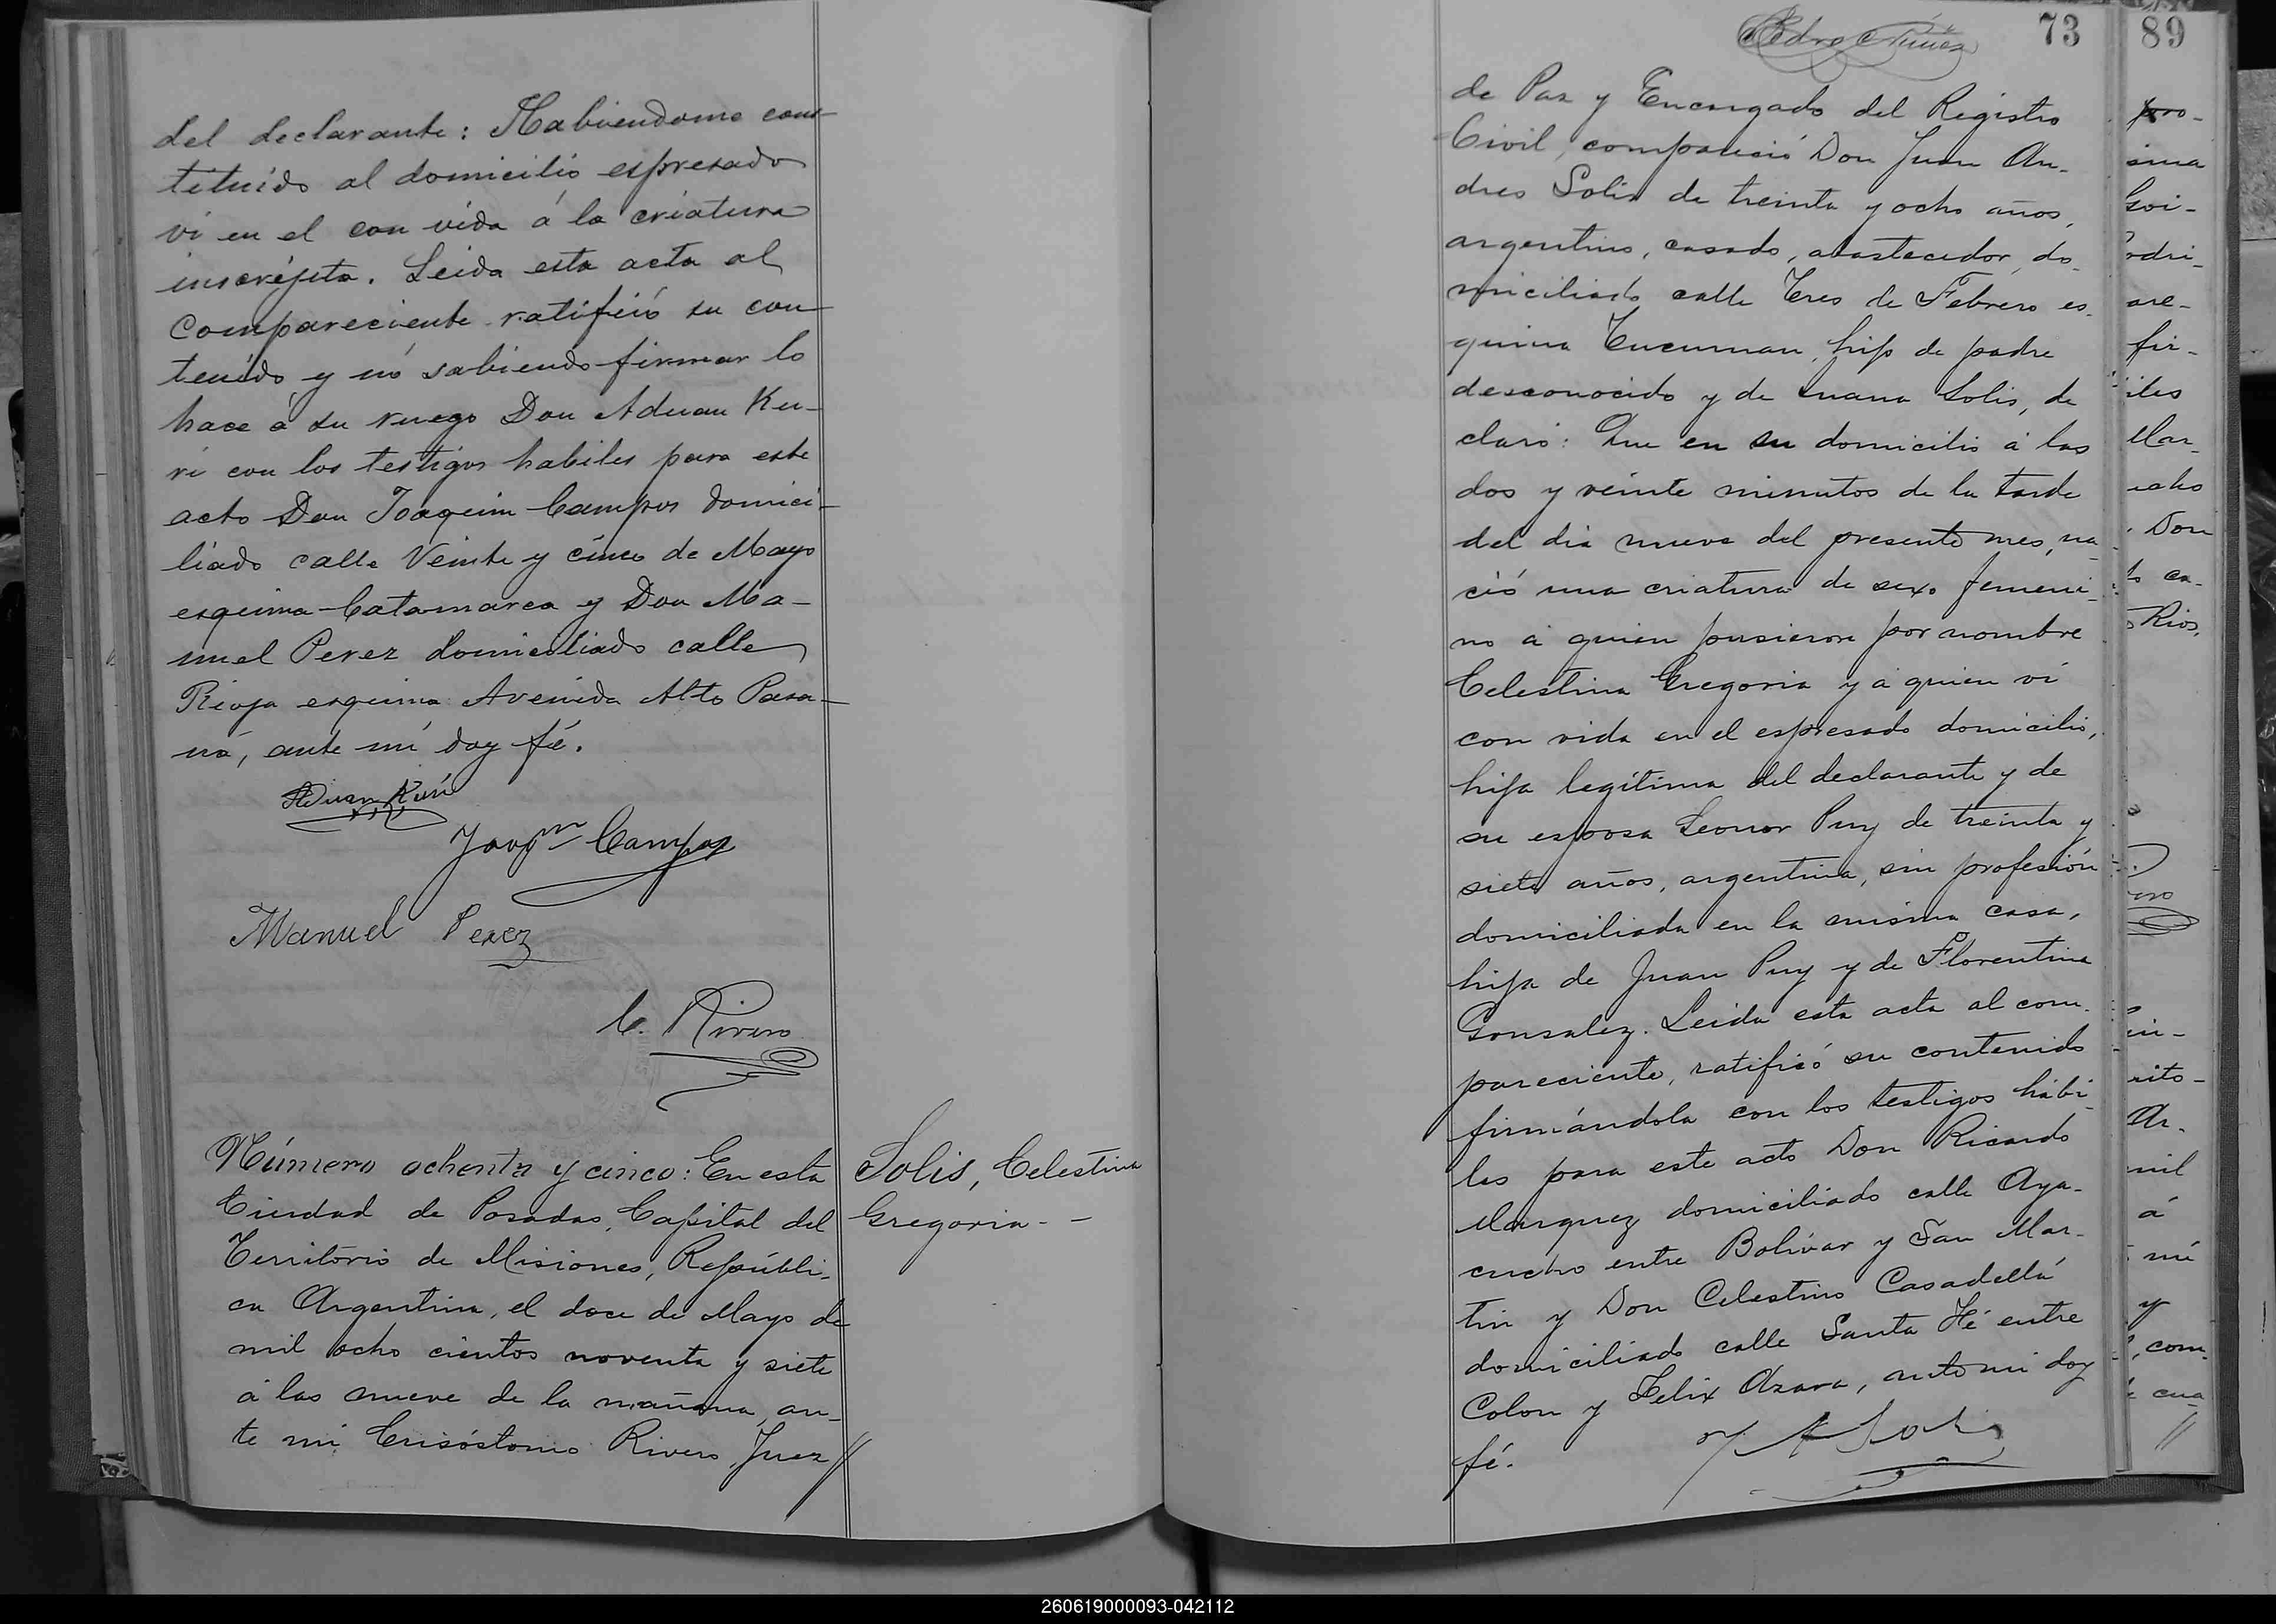 del declarante: Habiendome cons-
tituido al domicilio espresado
ví en el con vida á la criatura
inscripta. Leida esta acta al
Compareciente ratificó su con-
tenido y nó sabiendo firmar lo
hace á su ruego Don Aduan Ku-
ri con los testigos habiles para este
acto Don Joaquin Campos domici-
liado calle Veinte y cinco de Mayo
esquina Catamarca y Don Ma-
nuel Perez domiciliado calle
Rioja esquina Avenida Alto Para-
ná, ante mí doy fé.
Aduan Kuri
Joaqn Campos
Manuel Perez
C. Rivero
Número ochenta y cinco: En esta
Ciudad de Posadas, Capital del
Territorio de Misiones, Repúbli-
ca Argentina, el doce de Mayo de
mil ocho cientos noventa y siete
á las nueve de la mañana, an-
te mi Crisóstomo Rivero, Juez //
Solis, Celestina
Gregoria - -
Pedro Nuñez
73
de Paz y Encargado del Registro
Civil, compareció Don Juan An-
dres Solis de treinta y ocho años,
argentino, casado, abastecedor, do-
miciliado calle Tres de Febrero es-
quina Tucuman, hijo de padre
desconocido y de Juana Solis, de
claró: Que en su domicilio á las
dos y veinte minutos de la tarde
del dia nueve del presente mes, na-
ció una criatura de sexo femeni-
no á quien pusieron por nombre
Celestina Gregoria y á quien ví
con vida en el espresado domicilio,
hija legítima del declarante y de
su esposa Leonor Puy de treinta y
siete años, argentina, sin profesión
domiciliada en la misma casa,
hija de Juan Puy y de Florentina
Gonzalez. Leida esta acta al com-
pareciente, ratificó su contenido
firmándola con los testigos hábi-
les para este acto Don Ricardo
Marquez domiciliado calle Aya-
cucho entre Bolívar y San Mar-
tin y Don Celestino Casadellá
domiciliado calle Santa Fé entre
Colon y Felix Azara, ante mi doy
fé.
J A Solis
89
pro-
sina
Goi-
odri-
are-
fir-
iles
Mar-
Don
Rios,
rito-
Ar-
mil
á
mí
y
, com-
cua
//
260619000093-042112